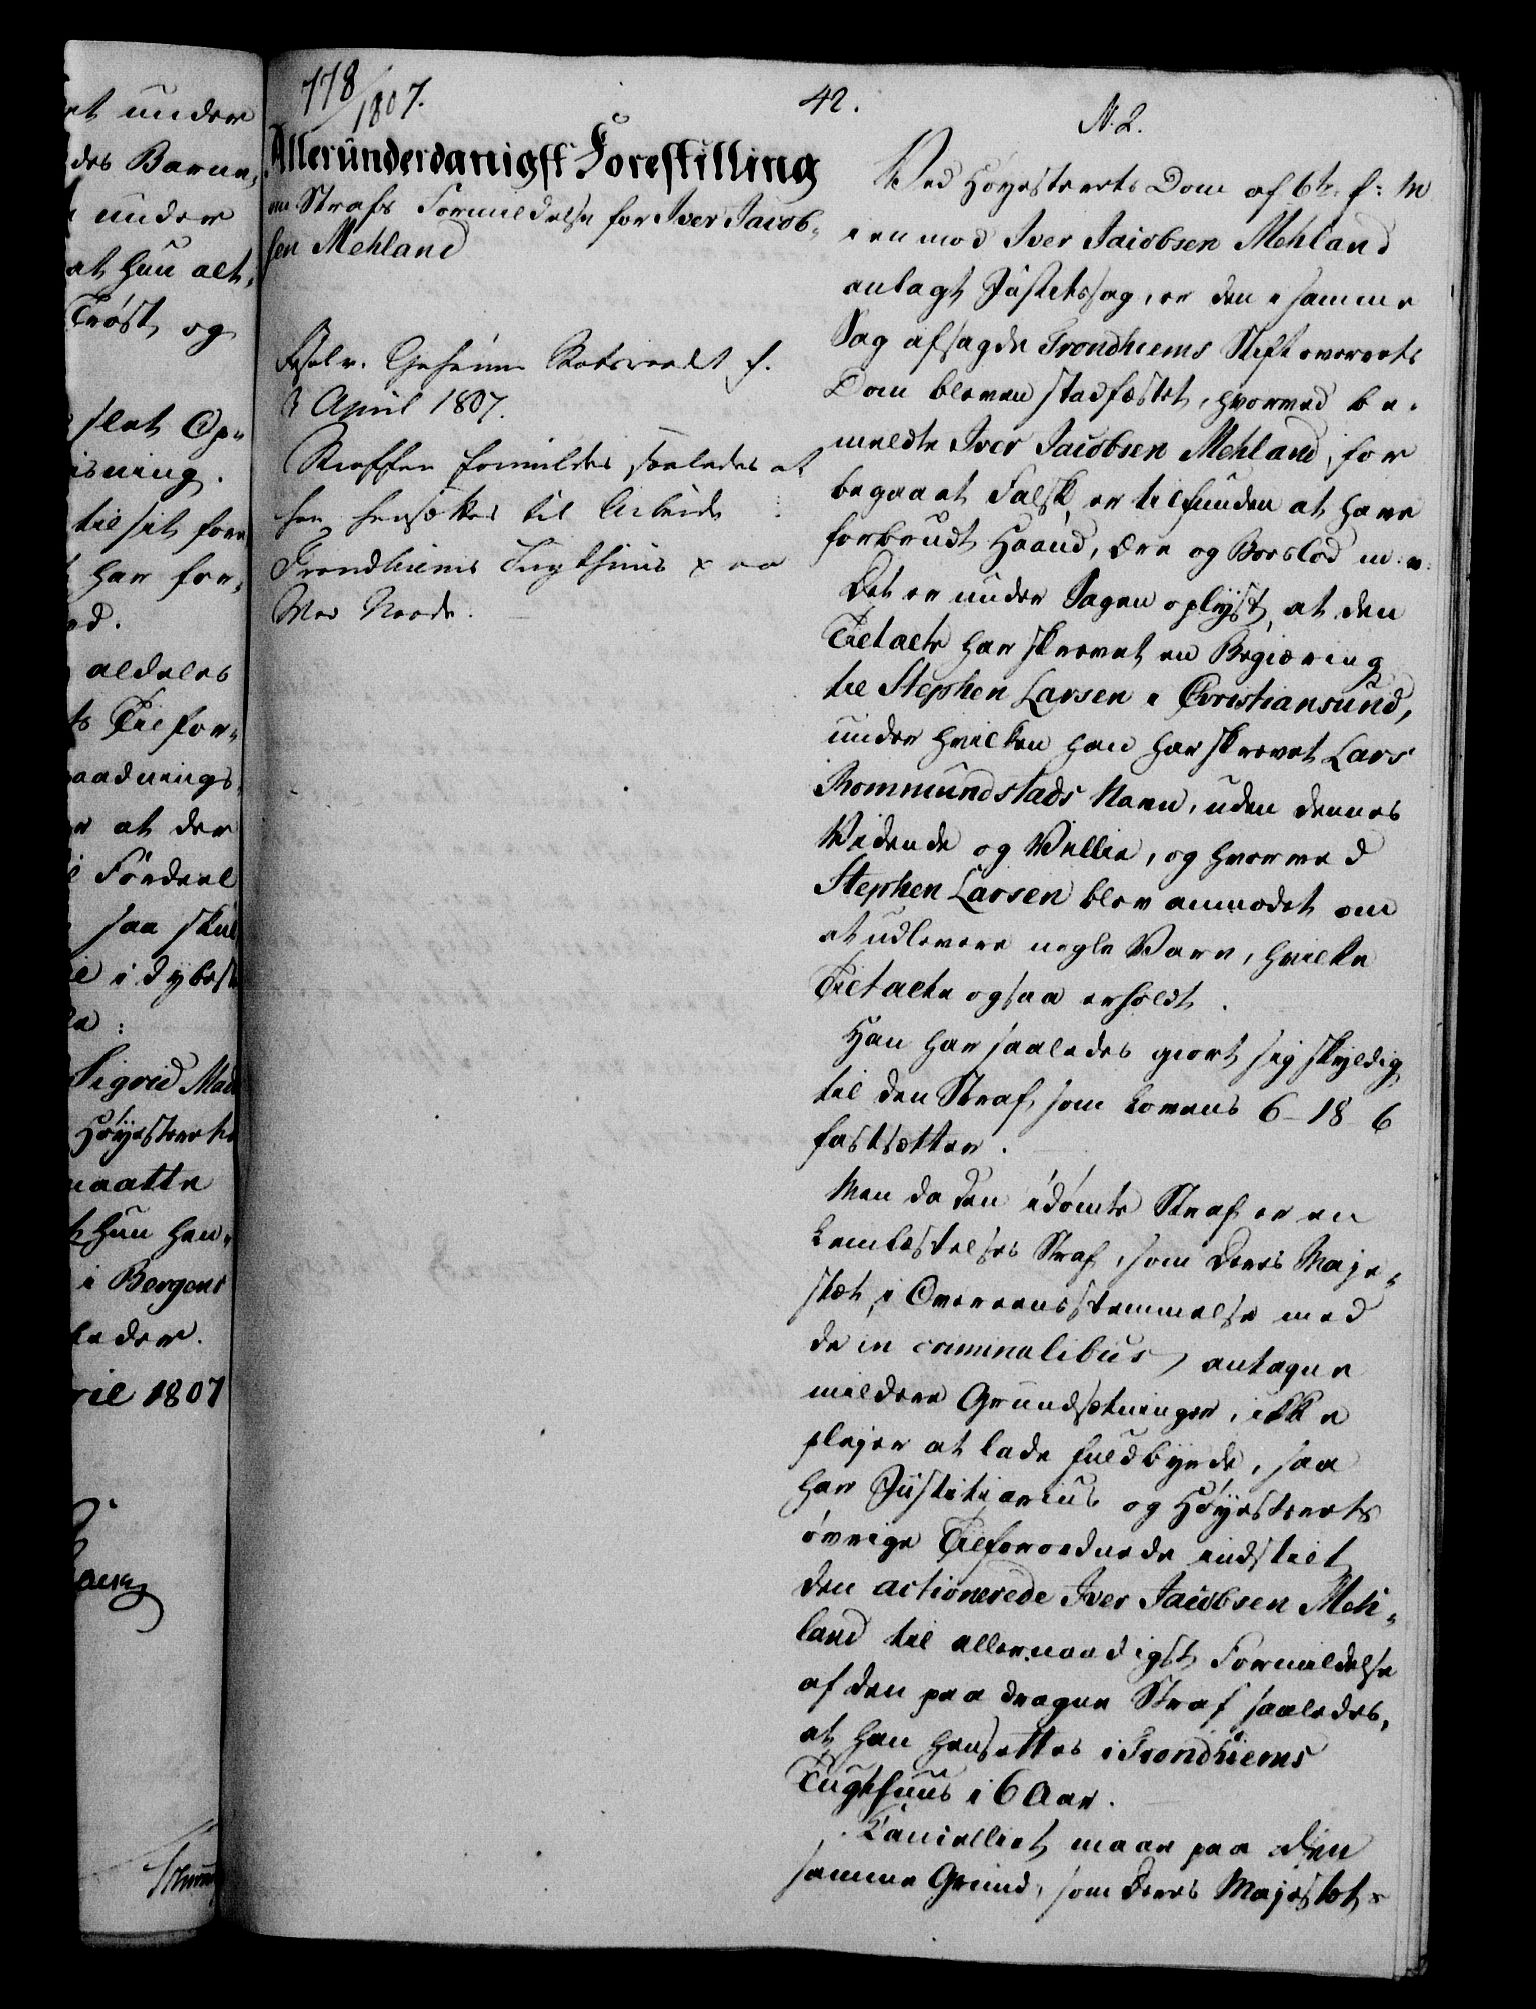 et under
des Barne,
under
at hun alt,
Trøst, og
slet Op-
isning.
til sit fore
har for,
ed.
aldeles
ts Tilfor,
aadnings,
at der
Fordeel
saa skul
i dybest
Sigrid Mad
Høyesterets
maatte
hun hen,
i Bergens
leder.
ril 1807
778/1807.
42.
N. 2.
Allerunderdanigst Forestilling
om Strafs Formildelse for Iver Jacob,
sen Mehland
Resolv. Geheime Statsraadet d.
3 April 1807.
Straffen formildes saaledes at
han hensættes til Arbeide i
Trondhiems Tugthuus paa
Vor Naade.
Ved Høyesterets Dom af 6te f: M
i en mod Iver Jacobsen Mehland
anlagt Justitssag, er den i samme
Sag afsagde Trondhiems Stiftoverrets
Dom bleven stadfæstet, hvorved be,
meldte Iver Jacobsen Mehland, for
begaaet Falsk, er tilfunden at have
forbrudt Haand, Ære og Boeslod m: v:
Det er under Sagen oplyst, at den
Tiltalte har skrevet en Begiæring
til Stephen Larsen i Christiansund,
under hvilken han har skrevet Lars
Rommundstads Navn, uden dennes
Vidende og Villie, og hvorved
Stephen Larsen blev anmodet om
at udlevere nogle Vare, hvilke
Tiltalte ogsaa erholdt.
Han har saaledes giort sig skyldig
til den Straf, som Lovens 6-18-6
fastsætter.
Men da den idømte Straf er en
Lemlæstelses Straf, som Deres Maje,
stæt, i Overeensstemmelse med
de in criminalibus antagne
mildere Grundsætninger, ikke
plejer at lade fuldbyrde, saa
har Justitiarius og Høyesterets
øvrige Tilforordnede indstilt
den actionerede Iver Jacobsen Meh,
land til allernaadigst Formildelse
af den paadragne Straf saaledes,
at han hensættes i Trondhiems
Tugthuus i 6 Aar.
Cancelliet maae paa den
samme Grund, som Deres Majestæts